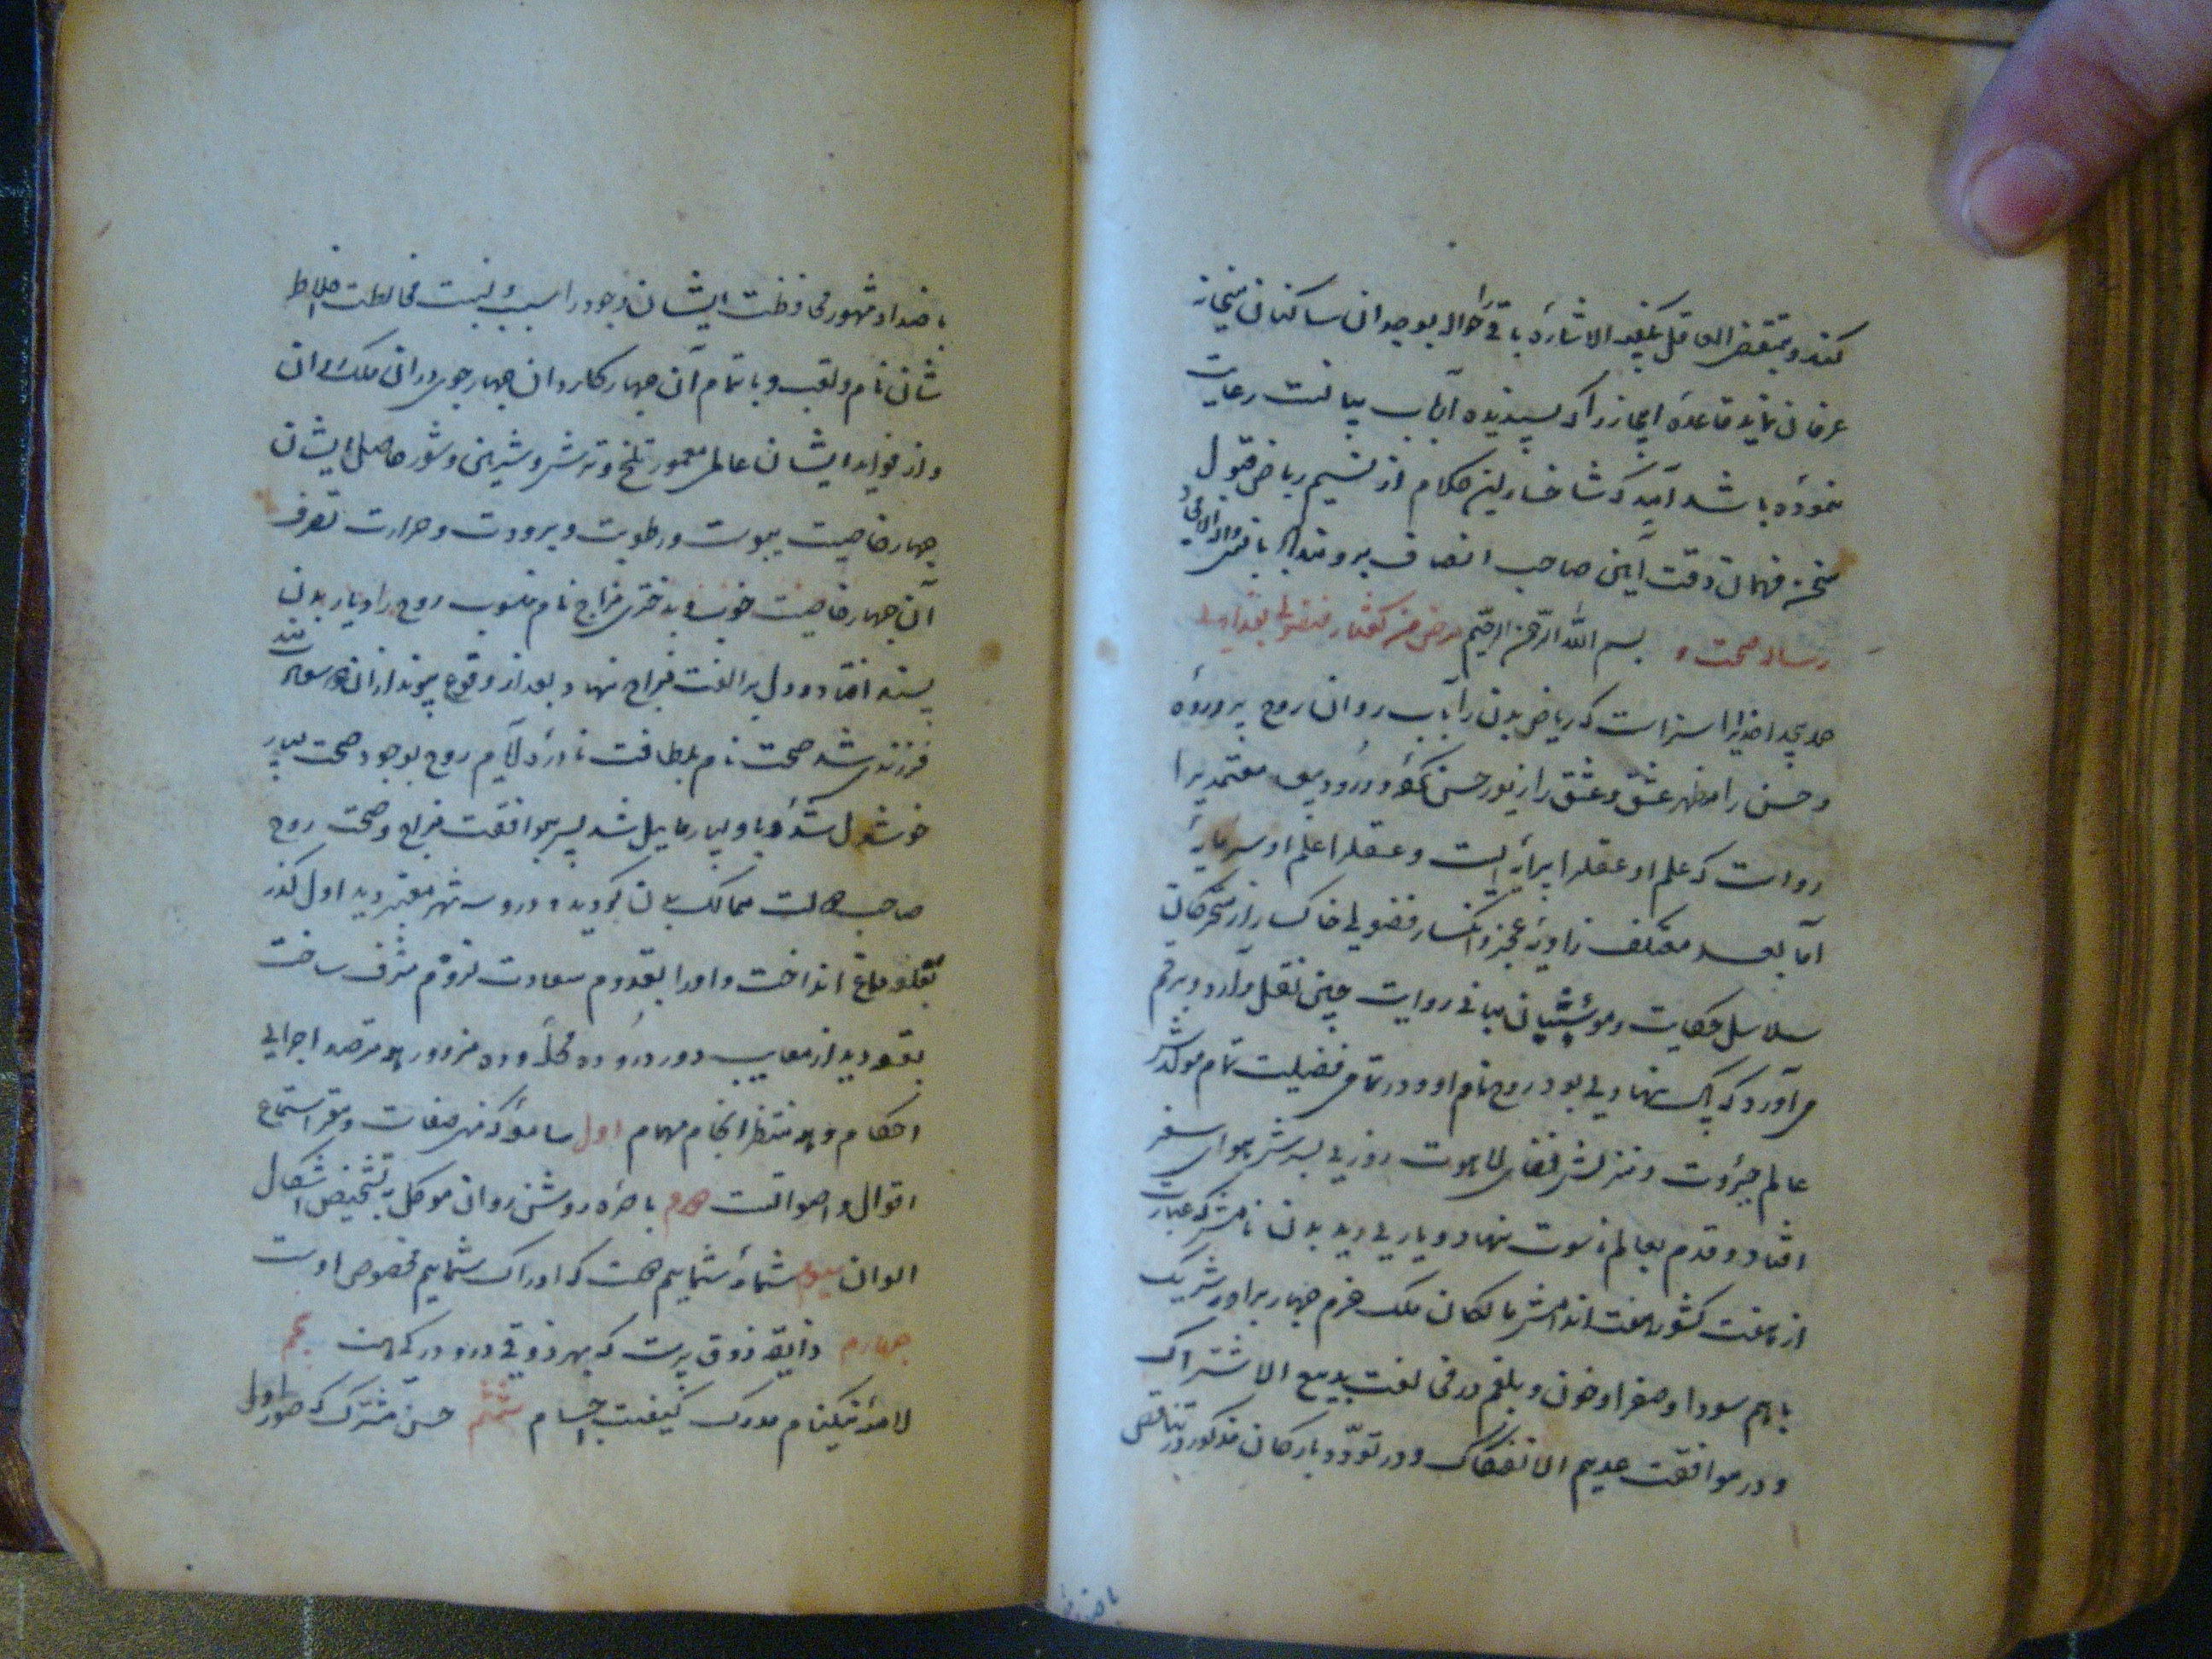 کند و بمقتضی العاقل یکفیه الاشاره باقی احوال را بوجدان ساکنان میخانه
عرفان نماید قاعده ایجاز را که پسندیده ارباب بیانست رعایت
نموده باشد امید که شاخسار این کلام از نسیم ریاض قبول
سخن فهمان دقت آیین صاحب انصاف برومند
رساله صحت و مرض من گفتار فضولی بغدادی بسم الله الرحمن الرحیم
حمد بیحد احدیرا سزاست که ریاض بدن را بآب روان روح پرورده
و حسن را مظهر عشق و عشق را زیور حسن کرده و درود معتمدیرا
رواست که علم او عقلرا پیرایه است و عقلرا علم او سرمایه
اما بعد معتکف زاویه عجز و انکسار فضولی خاکسار از متحرکان
سلاسل حکایت و موسسان مبانی روایت چنین نقل می آرد و برقم
می آورد که پاک نهادی بود روح نام او و در تمامی فضیلت تمام مولدش
عالم جبروت و منزلش فضای لاهوت روزی بسرش هوای سفر
افتاد و قدم بعالم ناسوت نهاد و دیاری دید بدن نامش که عبارت
از هفت کشور هفت اندامش مالکان ملک خرم چهار برادر شریک
باهم سودا و صفرا و خون و بلغم در مخالفت بدیع الاشتراک
و در موافقت عدیم الانفکاک و در تودد بارکان مذکور در تناقص
باضداد مشهور محافظت ایشان وجود را سبب و نسبت مخالطت اخلاط
شان نام و لقب و باتمام آن چهار کامروان چهار جوی در ان ملک روان
و از فواید ایشان عالم معمور تلخ و ترش و شیرین و شور حاصل ایشان
چهار خاصیت یبوست و رطوبت و برودت و حرارت تصرف
آن چهار خاصیت خوب و بدختری مزاج نام منسوب روح را دیار بدن
پسند افتاد و دل بر الفت مزاج نهاد و بعد از وقوع پیوند از ان
فرزندی شد صحت نام بلطافت نادره ایام روح بوجود صحت بسیار
خوشدل شد و باو بسیار مایل شد پس بموافقت مزاج و صحت روح
صاحب حالت ممالک بدن گردیده و درو سه شهر معتبر دید اول گذر
بقلعه دماغ انداخت و اورا بقدوم سعادت لزوم مشرف ساخت
بقعه دید از معایب دور درو ده محله و ده مزدور همه مترصد اجرای
احکام و همه منتظر انجام مهام اول سامعه که منبع صفات و مقر استماع
اقوال و اصواتست دوم باصره روشن روان موکل بتشخیص اشکال
الوان سیوم شامه شمایم هست که ادراک شمایم مخصوص اوست
چهارم ذایقه ذوق پرست که بهر ذوقی درو درکی هست پنجم
لامسه نیکنام مدرک کیفیت اجسام ششم حس مشترک که صور اول